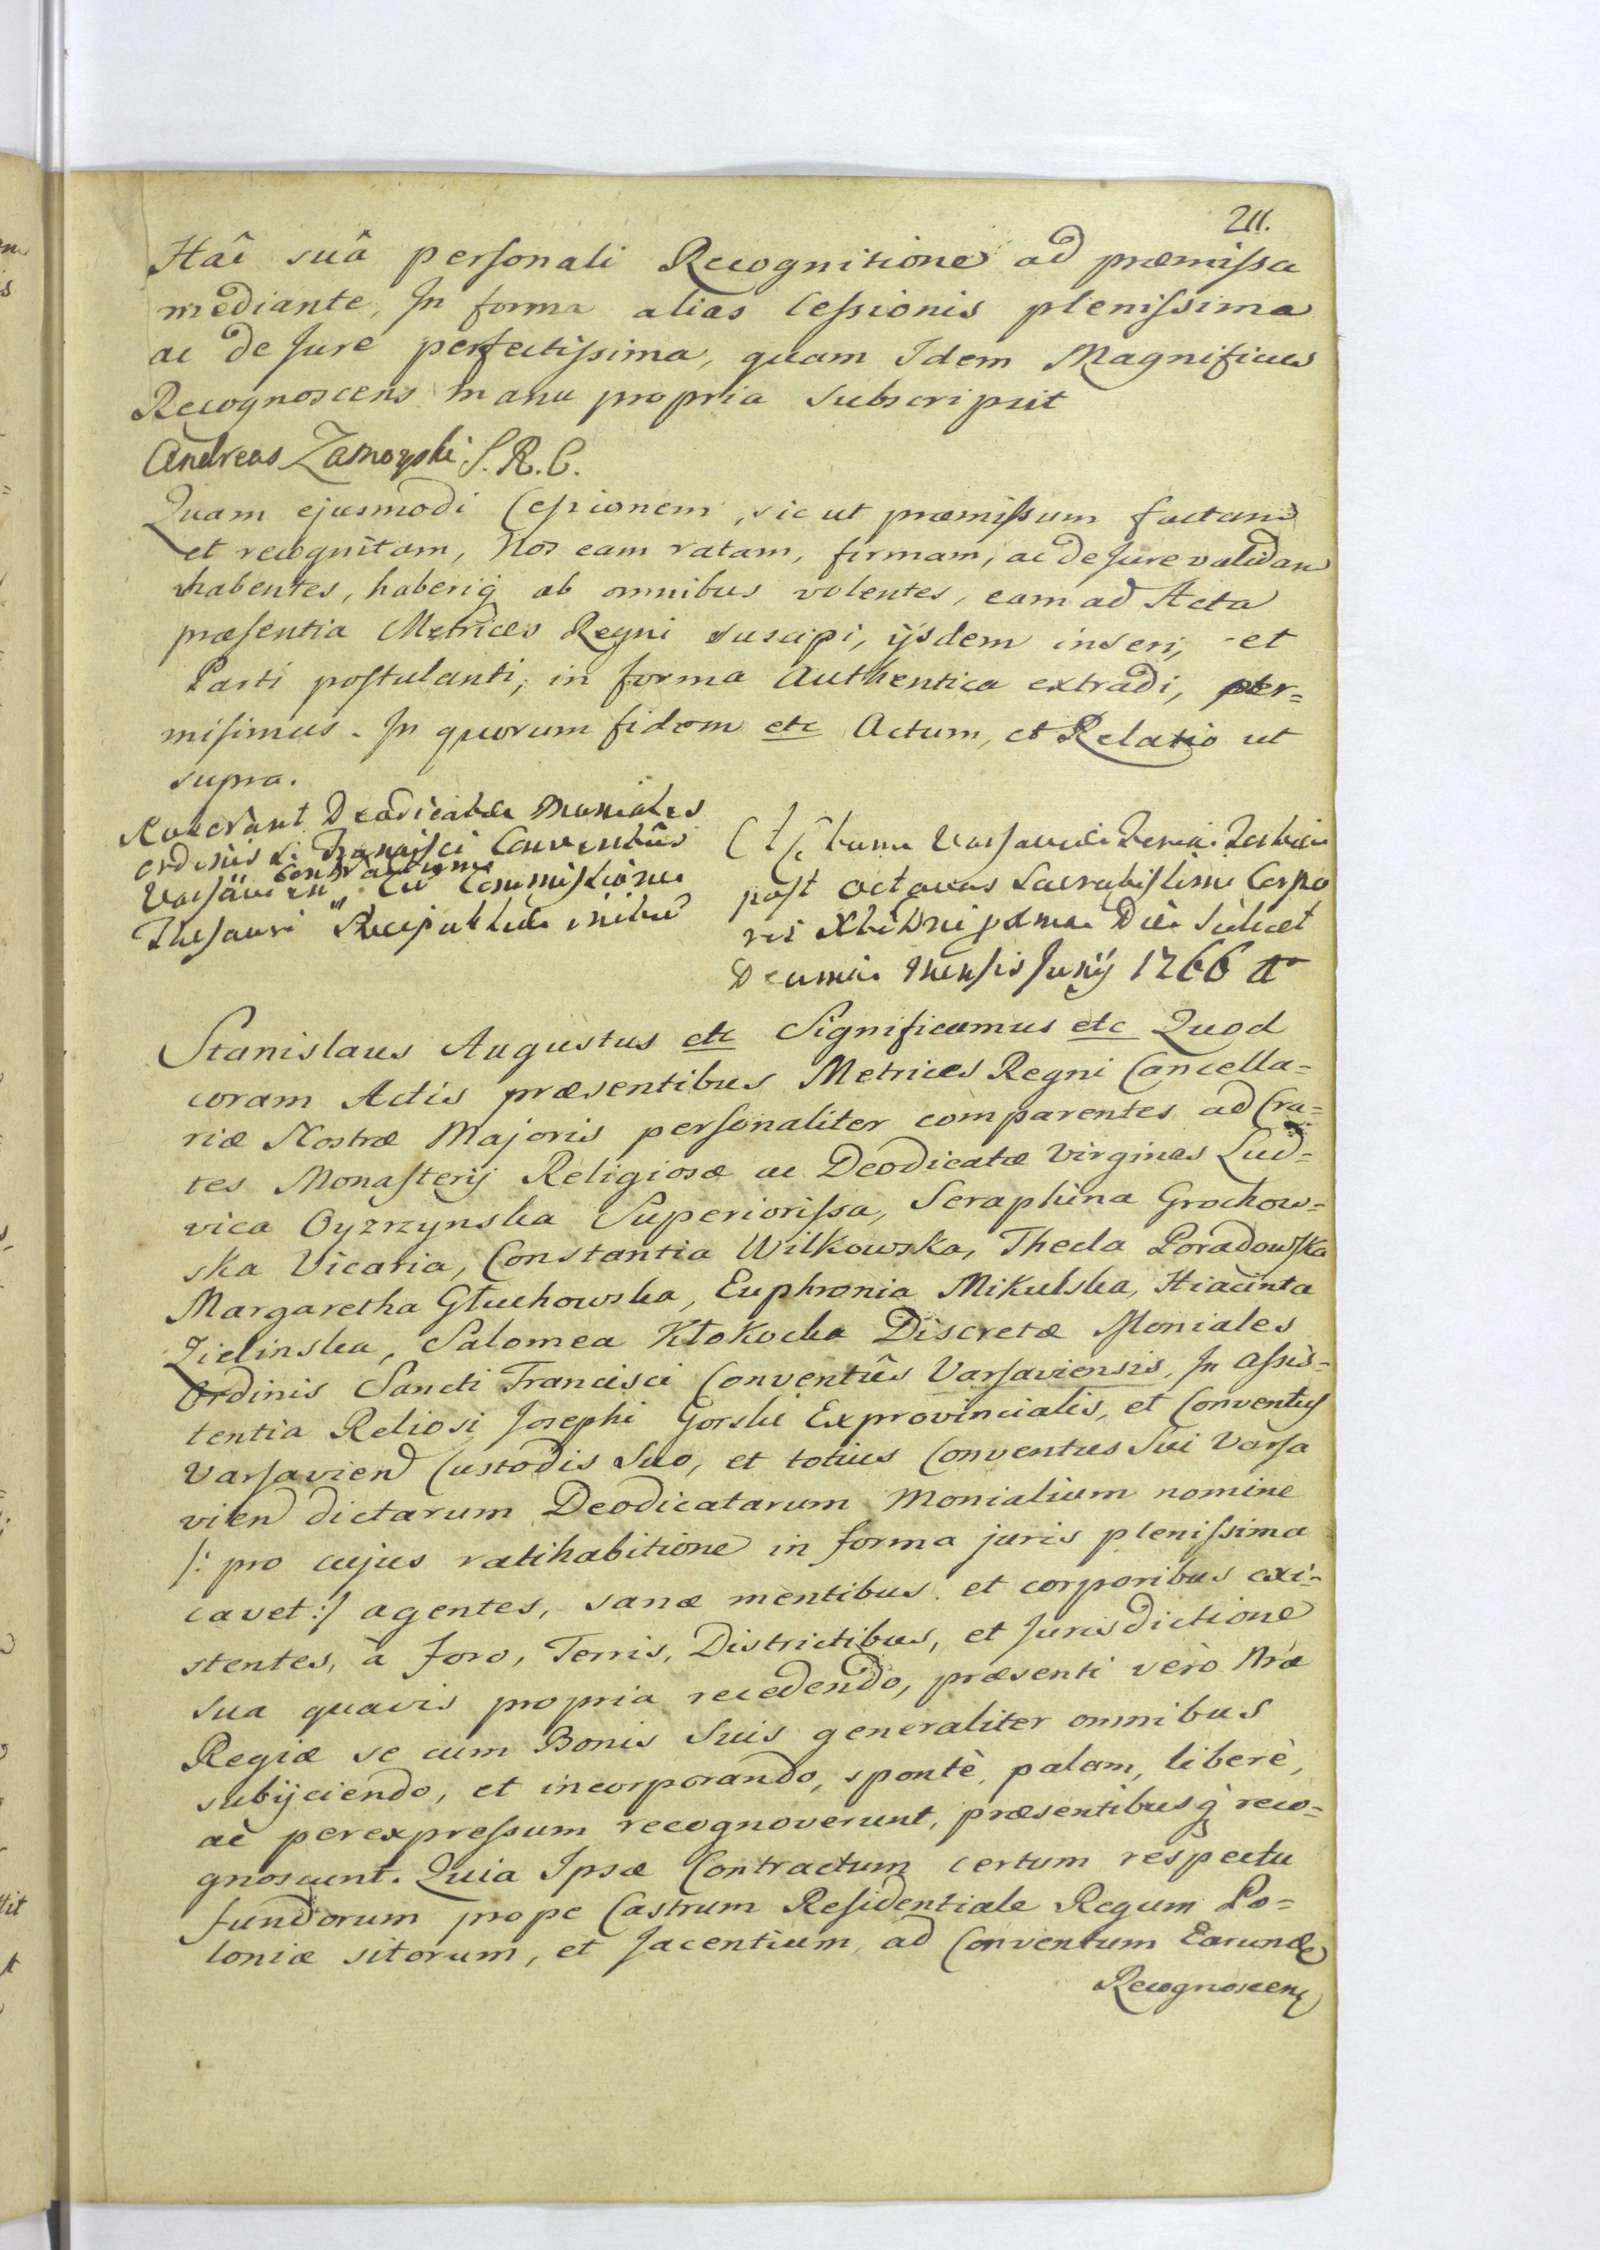 211.
Hac suâ personali Recognitione ad præmissa
mediante, In forma alias Cessionis plenissima
ac de Jure perfectissima, quam Idem Magnificus
Recognoscens manu propria subscripsit
Andreas Zamoyski S. R. C.
Quam ejusmodi Cessionem, sic ut præmissum factam
et recognitam, Nos eam ratam, firmam, ac de Jure validam
habentes, haberiq̃ ab omnibus volentes, eam ad Acta
præsentia Metrices Regni suscipi, ijsdem inseri, et
Parti postulanti, in forma Authentica extradi, per=
misimus. In quorum fidem etc Actum, et Relatio ut
supra.
Roborant Deodicatæ Moniales
Ordinis S. Francisci Conventûs
Varsavien Contractum
cū Commissione
Thesauri Reipublicæ initū
Actum Varsaviæ Feria Tertia
post Octavas Sacratissimi Corpo
ris Xti Dni proxima Die scilicet
Decima Mensis Junij 1766 Aō
Stanislaus Augustus etc Significamus etc Quod
coram Actis præsentibus Metrices Regni Cancella=
riæ Nostræ Majoris personaliter comparentes ad Cra=
tes Monasterij Religiosæ ac Deodicatæ Virgines Lud=
vica Oyrzynska Superiorissa, Seraphina Grochow=
ska Vicaria, Constantia Wilkowska, Thecla Poradowska
Margaretha Głuchowska, Euphronia Mikulska, Hiacinta
Zielinska, Salomea Kłokocka Discretæ Moniales
Ordinis Sancti Francisci Conventûs Varsaviensis, In Assis=
tentia Reliosi Josephi Gorski Exprovincialis, et Conventus
Varsavien Custodis Suo, et totius Conventus Sui Varsa
vien dictarum Deodicatarum Monialium nomine
/: pro cujus ratihabitione in forma juris plenissima
cavet :/ agentes, sanæ mentibus et corporibus exi=
stentes, à Foro, Terris, Districtibus, et Jurisdictione
sua quavis propria recedendo, præsenti verò Nræ
Regiæ se cum Bonis Suis generaliter omnibus
subijciendo, et incorporando, spontè, palam, liberè,
ac perexpressum recognoverunt, præsentibusq̃ reco=
gnoscunt. Quia Ipsæ Contractum certum respectu
fundorum prope Castrum Residentiale Regum Po=
loniæ sitorum, et Jacentium, ad Conventum Earunde
Recognoscen